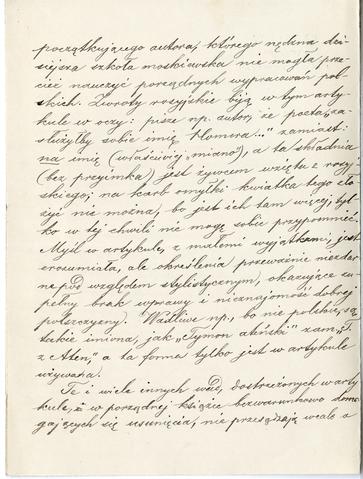 początkującego autora, którego nędzna dzi-
siejsza szkoła moskiewska nie mogła prze-
cież nauczyć porządnych wypracowań pol-
skich. Zwroty rosyjskie biją w tym arty-
kule w oczy: pisze np. autor, że poeta „za-
służyłby sobie imię Homera..." zamiast:
na imię (właściwiej „miano"), a ta składnia
(bez przyimka) jest żywcem wzięta z rosyj-
skiego; na karb omyłki kwiatka tego zło-
żyć nie można, bo jest ich tam więcej, tyl-
ko w tej chwili nie mogę sobie przypomnieć.
Myśl w artykule, z małemi wyjątkami, jest
zrozumiała, ale określenia przeważnie niezdar-
ne pod względem stylistycznym, okazujące zu-
pełny brak wprawy i nieznajomość dobrej
polszczyzny. Wadliwe np., bo nie polskie, są
takie imiona, jak „Tymon ateński" zam. „T.
z Aten," a ta forma tylko jest w artykule
używana.
Te i wiele innych wad, dostrzeżonych w arty-
kule, a w porządnej książce bezwarunkowo doma-
gających się usunięcia, nie przesądzają wcale o